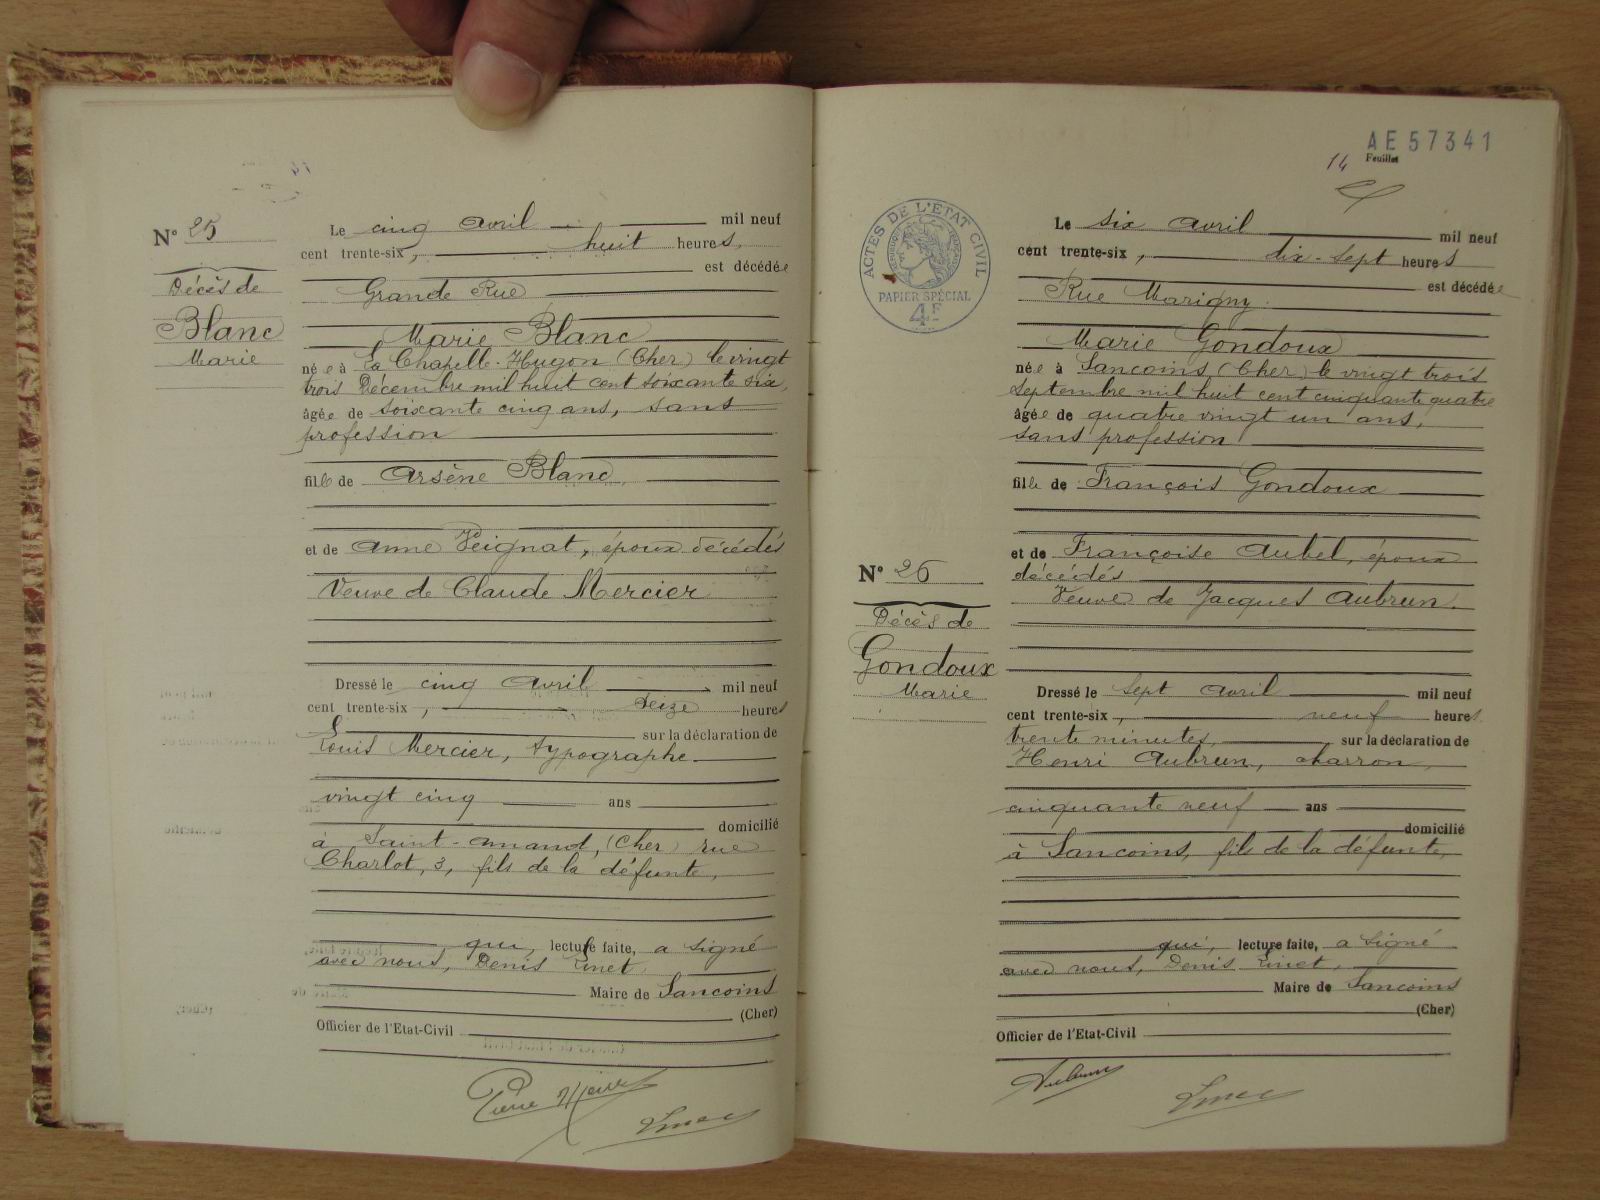 N° 25
Décès de
Blanc
Marie
Le cinq avril mil neuf
cent trente-six, huit heures,
est décédée
Grande Rue
Marie Blanc
née à La Chapelle-Hugon (Cher) le vingt
trois Décembre mil huit cent soixante six,
âgée de soixante cinq ans, sans
profession
fille de Arsène Blanc,
et de Anne Peignat, époux décédés
Veuve de Claude Mercier
Dressé le cinq avril mil neuf
cent trente-six, seize heures
sur la déclaration de
Louis Mercier, typographe
vingt cinq ans
domicilié
à Saint-Amand, (Cher) rue
Charlot, 3, fils de la défunte,
, qui, lecture faite, a signé
avec nous, Denis Linet,
Maire de Sancoins
(Cher)
Officier de l'Etat-Civil
AE 57341
14 Feuillet
ACTES DE L'ETAT CIVIL
PAPIER SPÉCIAL
4F
Le six avril mil neuf
cent trente-six, dix-sept heures
est décédée
Rue Marigny.
Marie Gondoux
née à Sancoins (Cher) le vingt trois
septembre mil huit cent cinquante quatre
âgée de quatre vingt un ans,
sans profession
fille de François Gondoux
N° 26
Décès de
Gondoux
Marie
et de Françoise Aubel, époux
décédés
Veuve de Jacques Aubrun.
Dressé le sept avril mil neuf
cent trente-six, neuf heures
trente minutes, sur la déclaration de
Henri Aubrun, charron,
cinquante neuf ans
domicilié
à Sancoins, fils de la défunte,
qui, lecture faite, a signé
avec nous, Denis Linet,
Maire de Sancoins
(Cher)
Officier de l'Etat-Civil
Aubrun
Linet